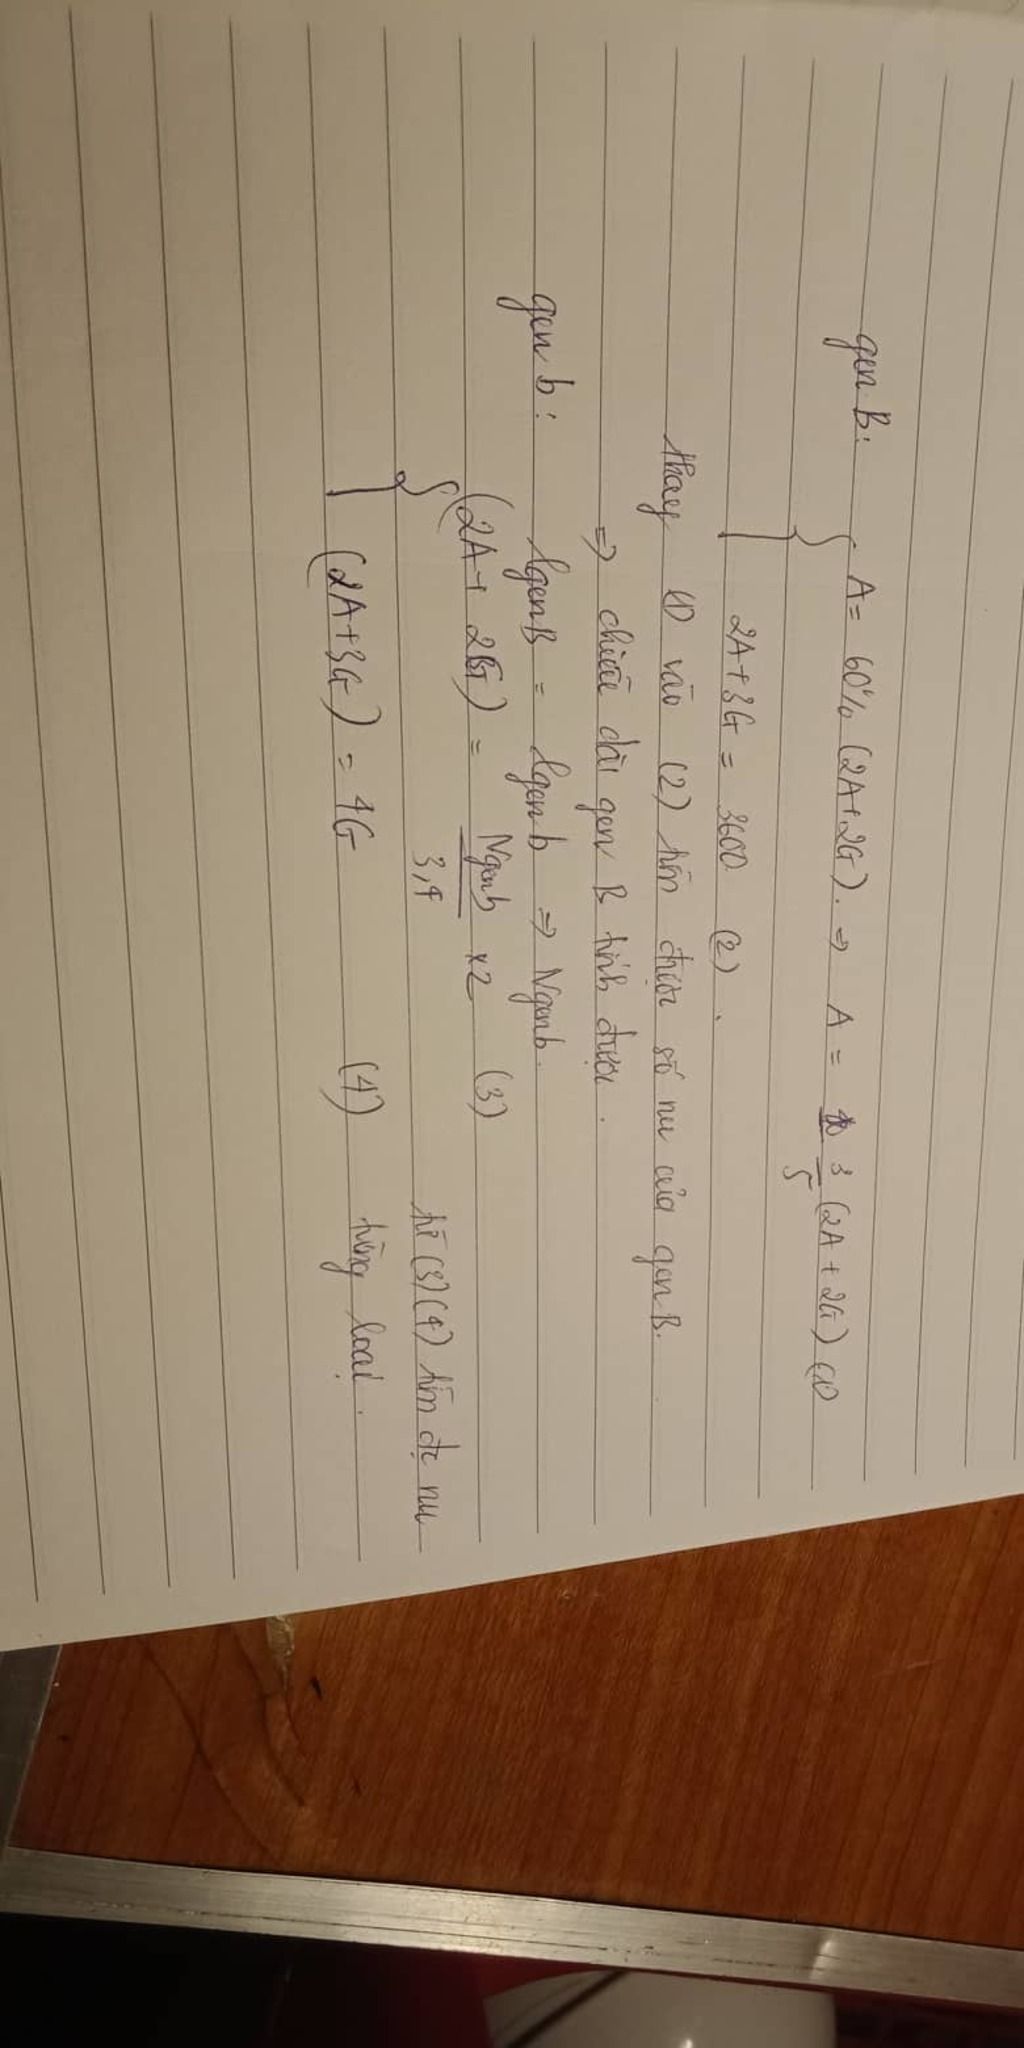 gen B: { A = 60% (2A+2G). => A = 3/5 (2A + 2G) (1)
2A+3G = 3600 (2).
thay (1) vào (2) tìm được số nu của gen B.
=> chiều dài gen B tính được.
gen b: lgenB = lgenb => Ngenb.
{ (2A + 2G) = Ngenb/3,4 x2 (3)
(2A+3G) = 4G (4)
từ (3)(4) tìm đc nu
từng loại.